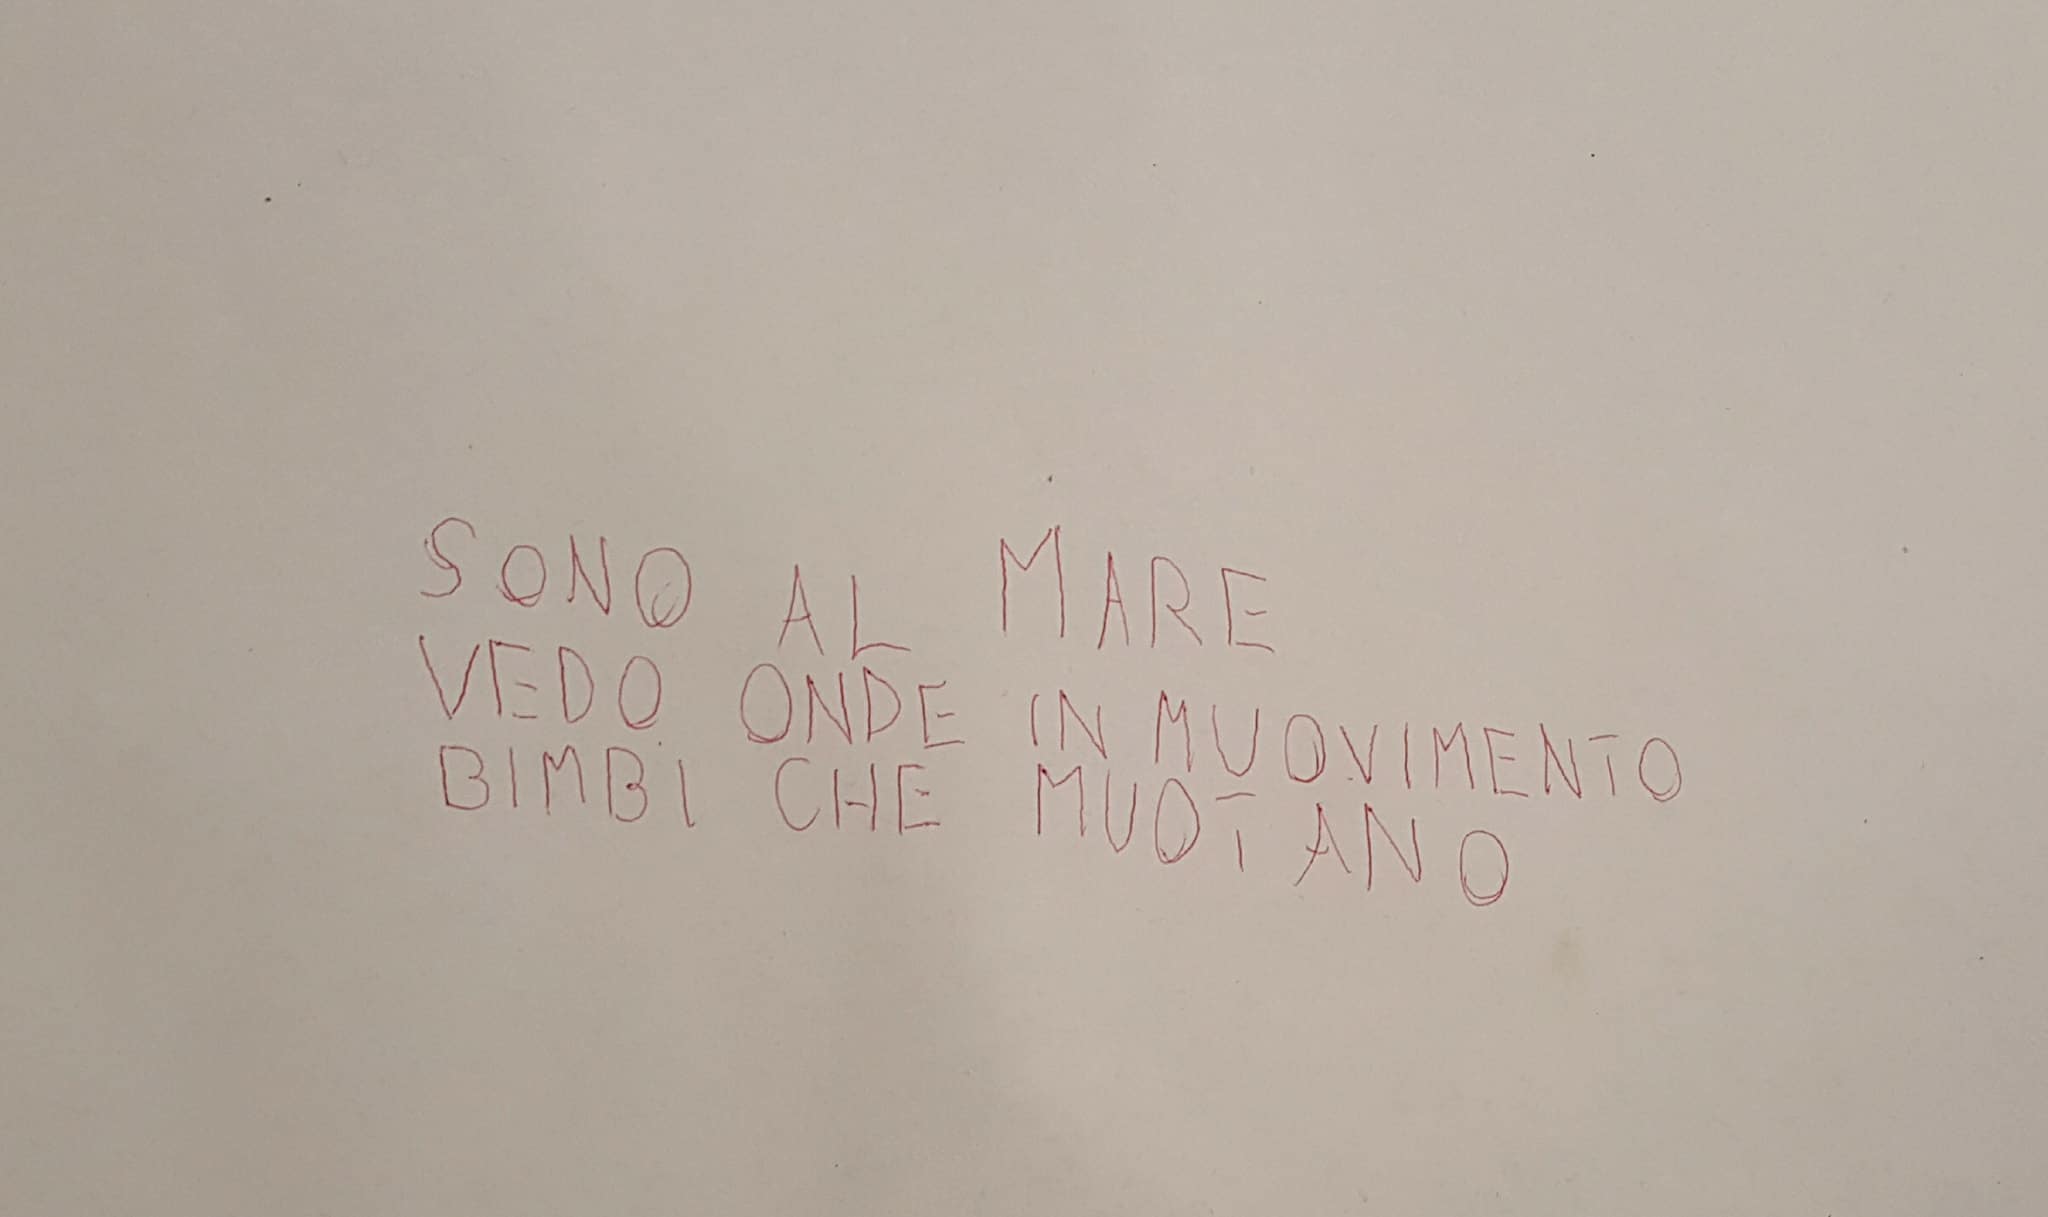 SONO AL MARE
VEDO ONDE IN MUOVIMENTO
BIMBI CHE MUOTANO